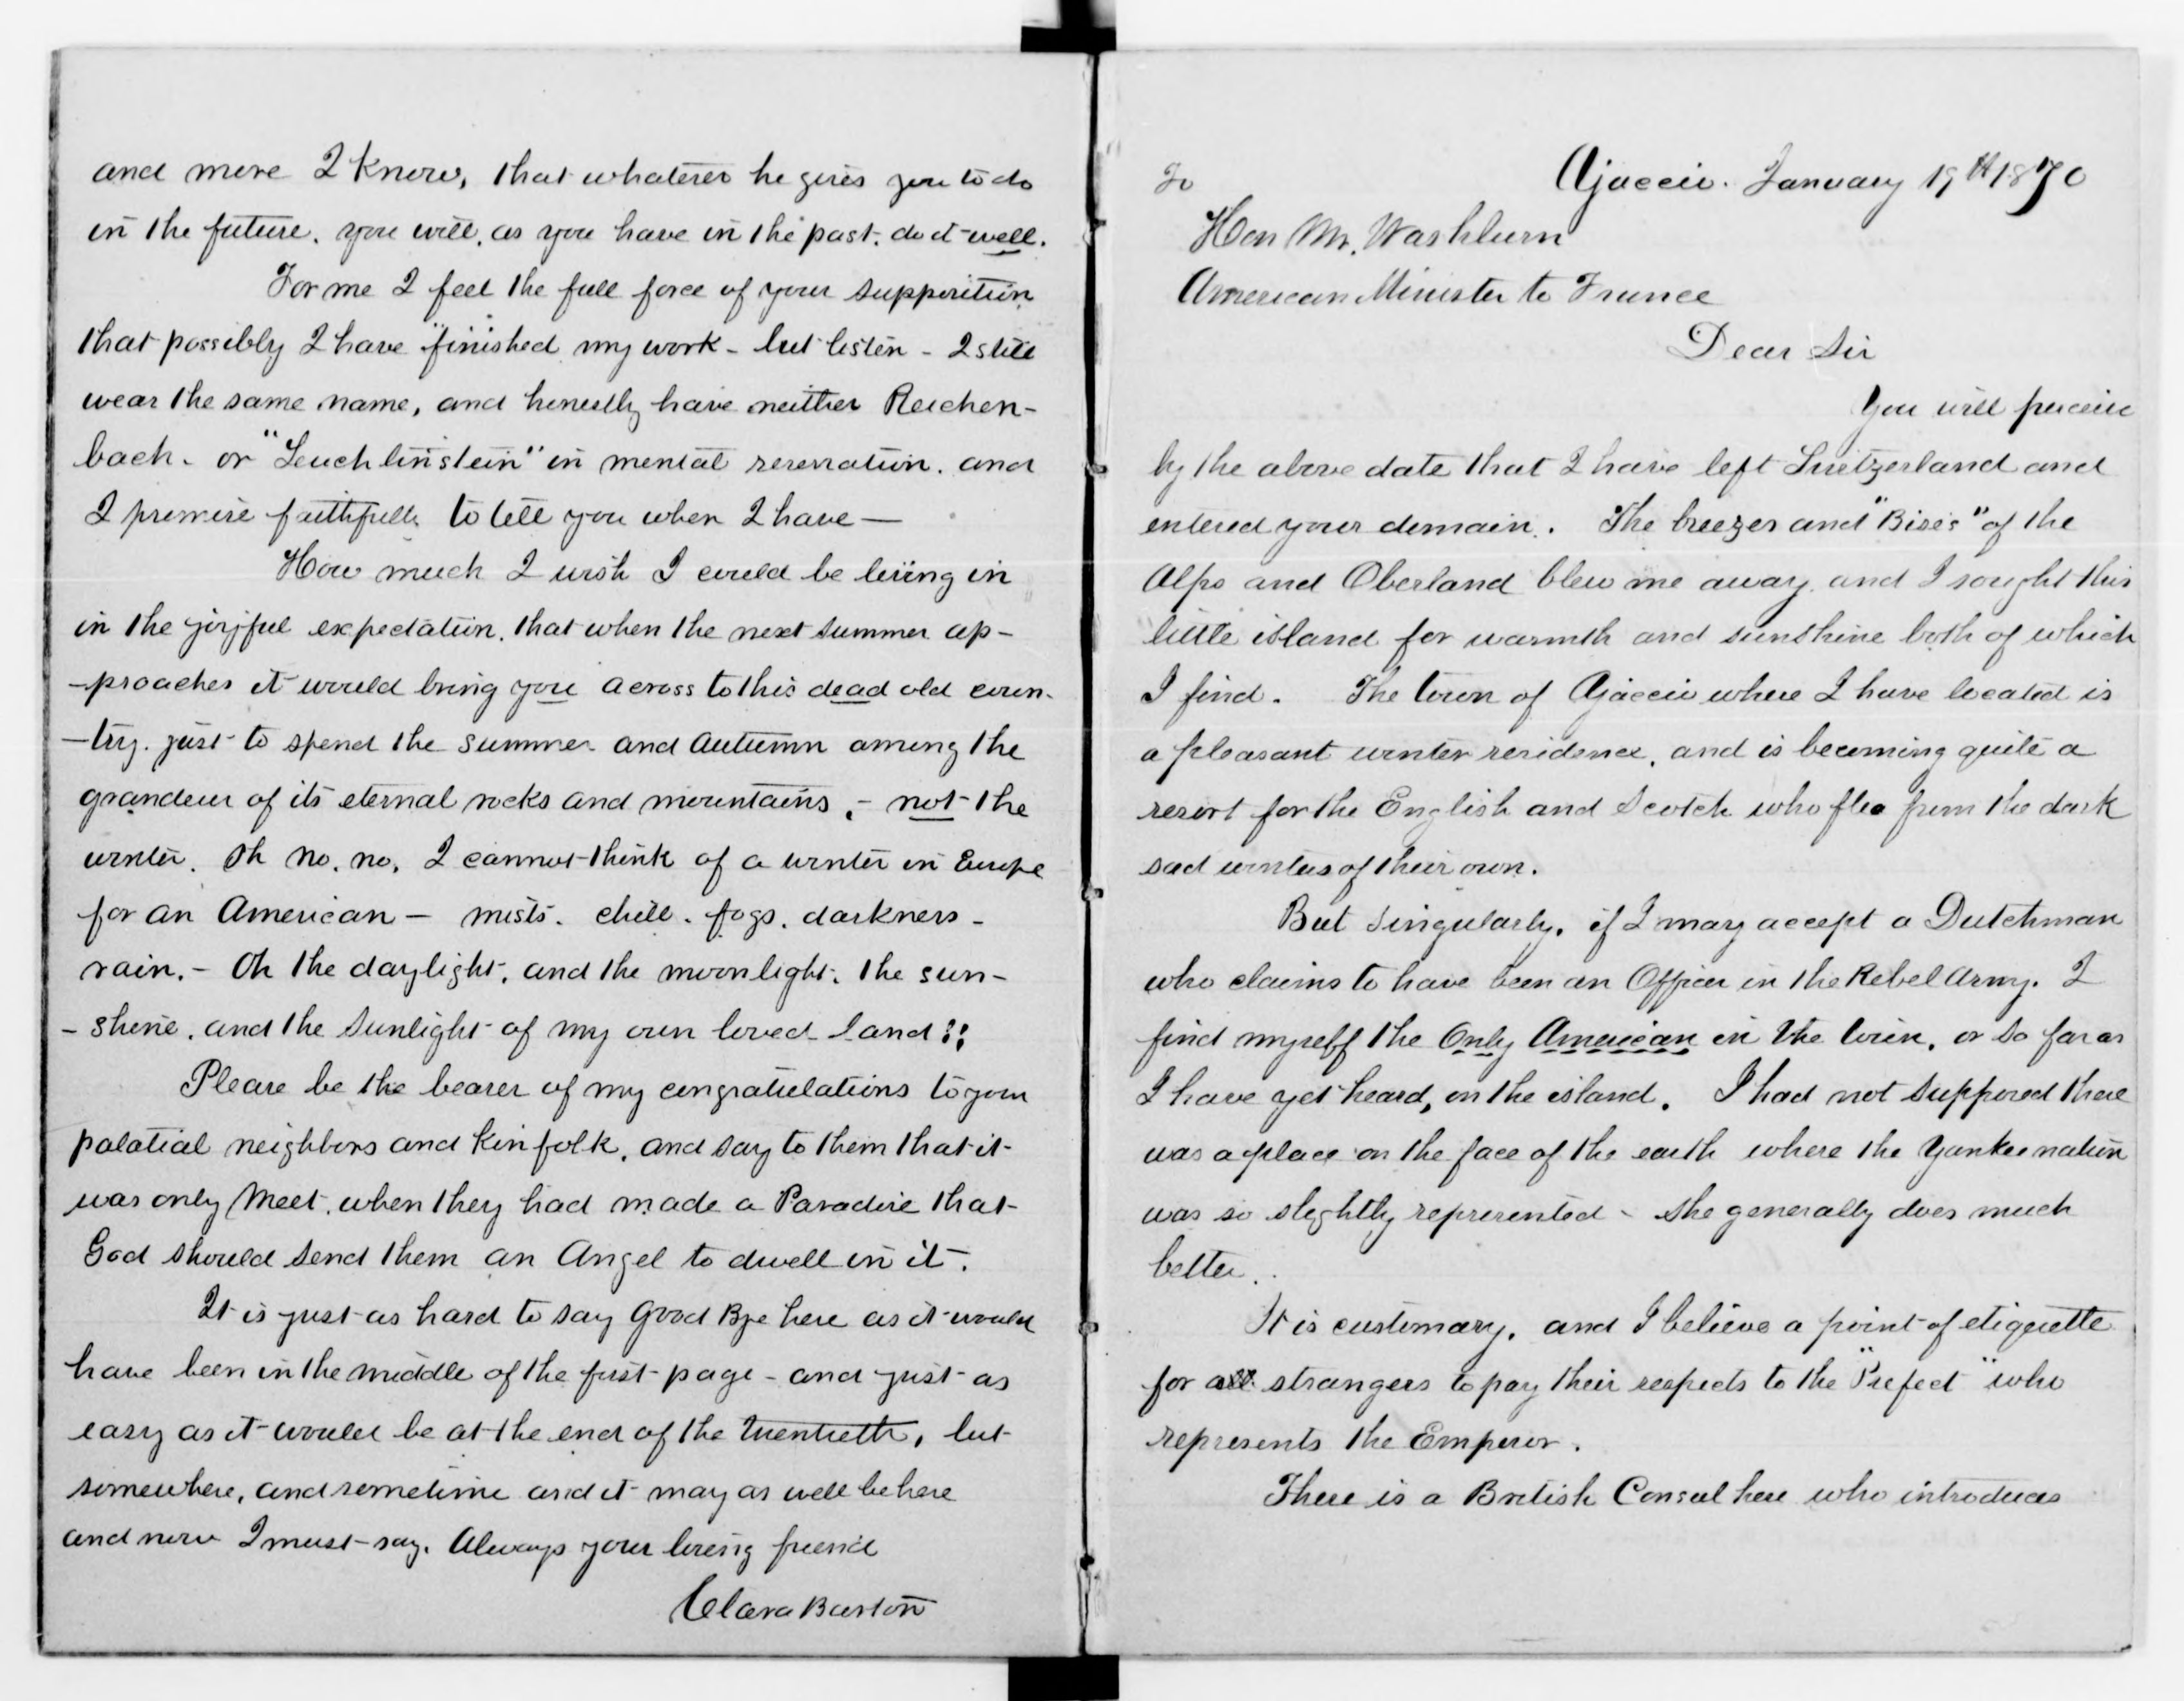 and more I know, that whatever he gives you to do
in the future. you will, as you have in the past, do it well.
For me I feel the full force of your supposition
that possibly I have "finished my work - but listen - I still
wear the same name, and honestly have neither Reichen-
bach. or "Leuchlinstein" in mental reservation. and
I promise faithfully to tell you when I have —
How much I wish I could be living in
in the joyful expectation, that when the next summer ap-
-proaches it would bring you across to this dead old coun-
-try. just to spend the summer and autumn among the
grandeur of its eternal rocks and mountains, - not the
winter. Oh no, no, I cannot think of a winter in Europe
for an American — mists. chill. fogs. darkness -
rain. - Oh the daylight, and the moonlight, the sun-
- shine, and the sunlight of my own loved land!!
Please be the bearer of my congratulations to your
palatial neighbors and kinfolk, and say to them that it
was only meet, when they had made a Paradise that
God should send them an Angel to dwell in it.
It is just as hard to say Good Bye here as it would
have been in the middle of the first page - and just as
easy as it would be at the end of the twentieth, but
somewhere, and sometime and it may as well be here
and now I must say. Always your loving friend
Clara Barton
To
Ajaccio. January 19th 1870
Hon Mr. Washburn
American Minister to France
Dear Sir
You will perceive
by the above date that I have left Switzerland and
entered your domain. The breezes and "Bises" of the
Alps and Oberland blew me away, and I sought this
little island for warmth and sunshine both of which
I find. The town of Ajaccio where I have located is
a pleasant winter residence, and is becoming quite a
resort for the English and Scotch who flee from the dark
sad winters of their own.
But singularly, if I may accept a Dutchman
who claims to have been an Officer in the Rebel Army. I
find myself the only American in the town, or so far as
I have yet heard, on the island. I had not supposed there
was a place on the face of the earth where the Yankee nation
was so slightly represented - she generally does much
better.
It is customary, and I believe a point of etiquette
for all strangers to pay their respects to the "Prefect" who
represents the Emperor.
There is a British Consul here who introduces